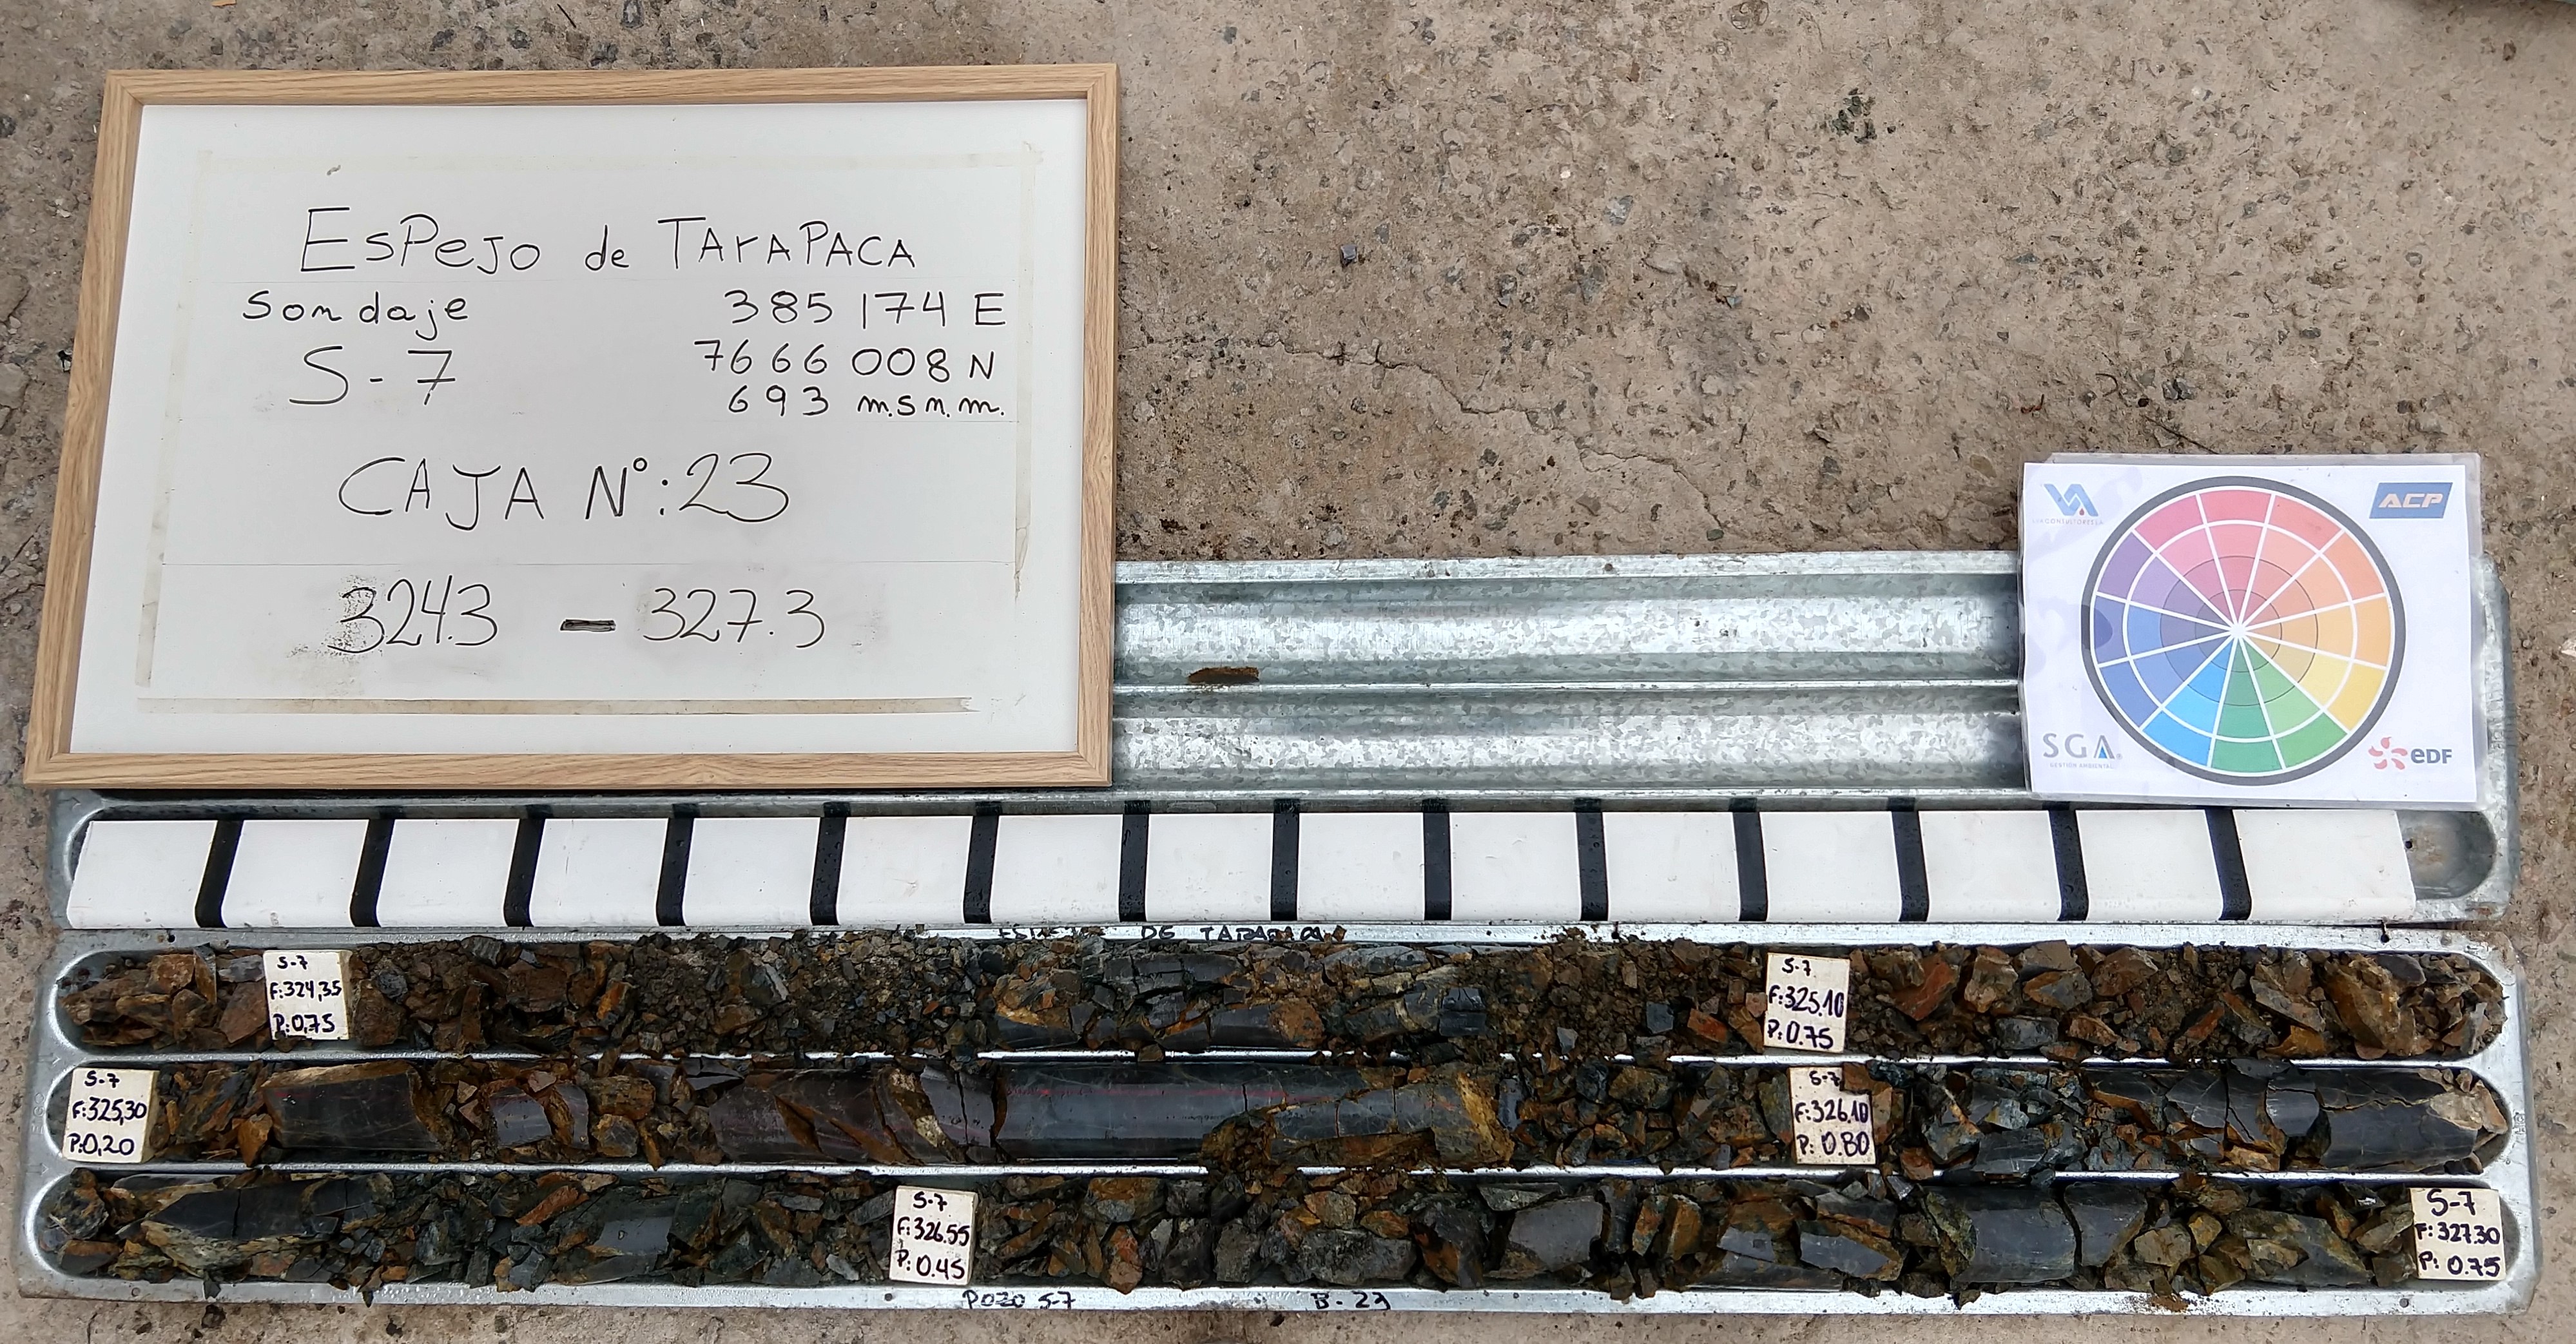 ESPEJO de TArAPACA
Sondaje
385 174 E
S-7
7666 008 N
693 m.s.n.m.
CAJA N°:23
324.3 - 327.3
ACP
SGA
GESTIÓN AMBIENTAL
eDF
DE TARAPACA
S-7
F:324,35
P:0,75
S-7
F:325.10
P:0.75
S-7
F:325,30
P:0,20
S-7
F:326.10
P:0.80
S-7
F:326.55
P:0.45
S-7
F:327.30
P:0.75
POZO S-7
B-23